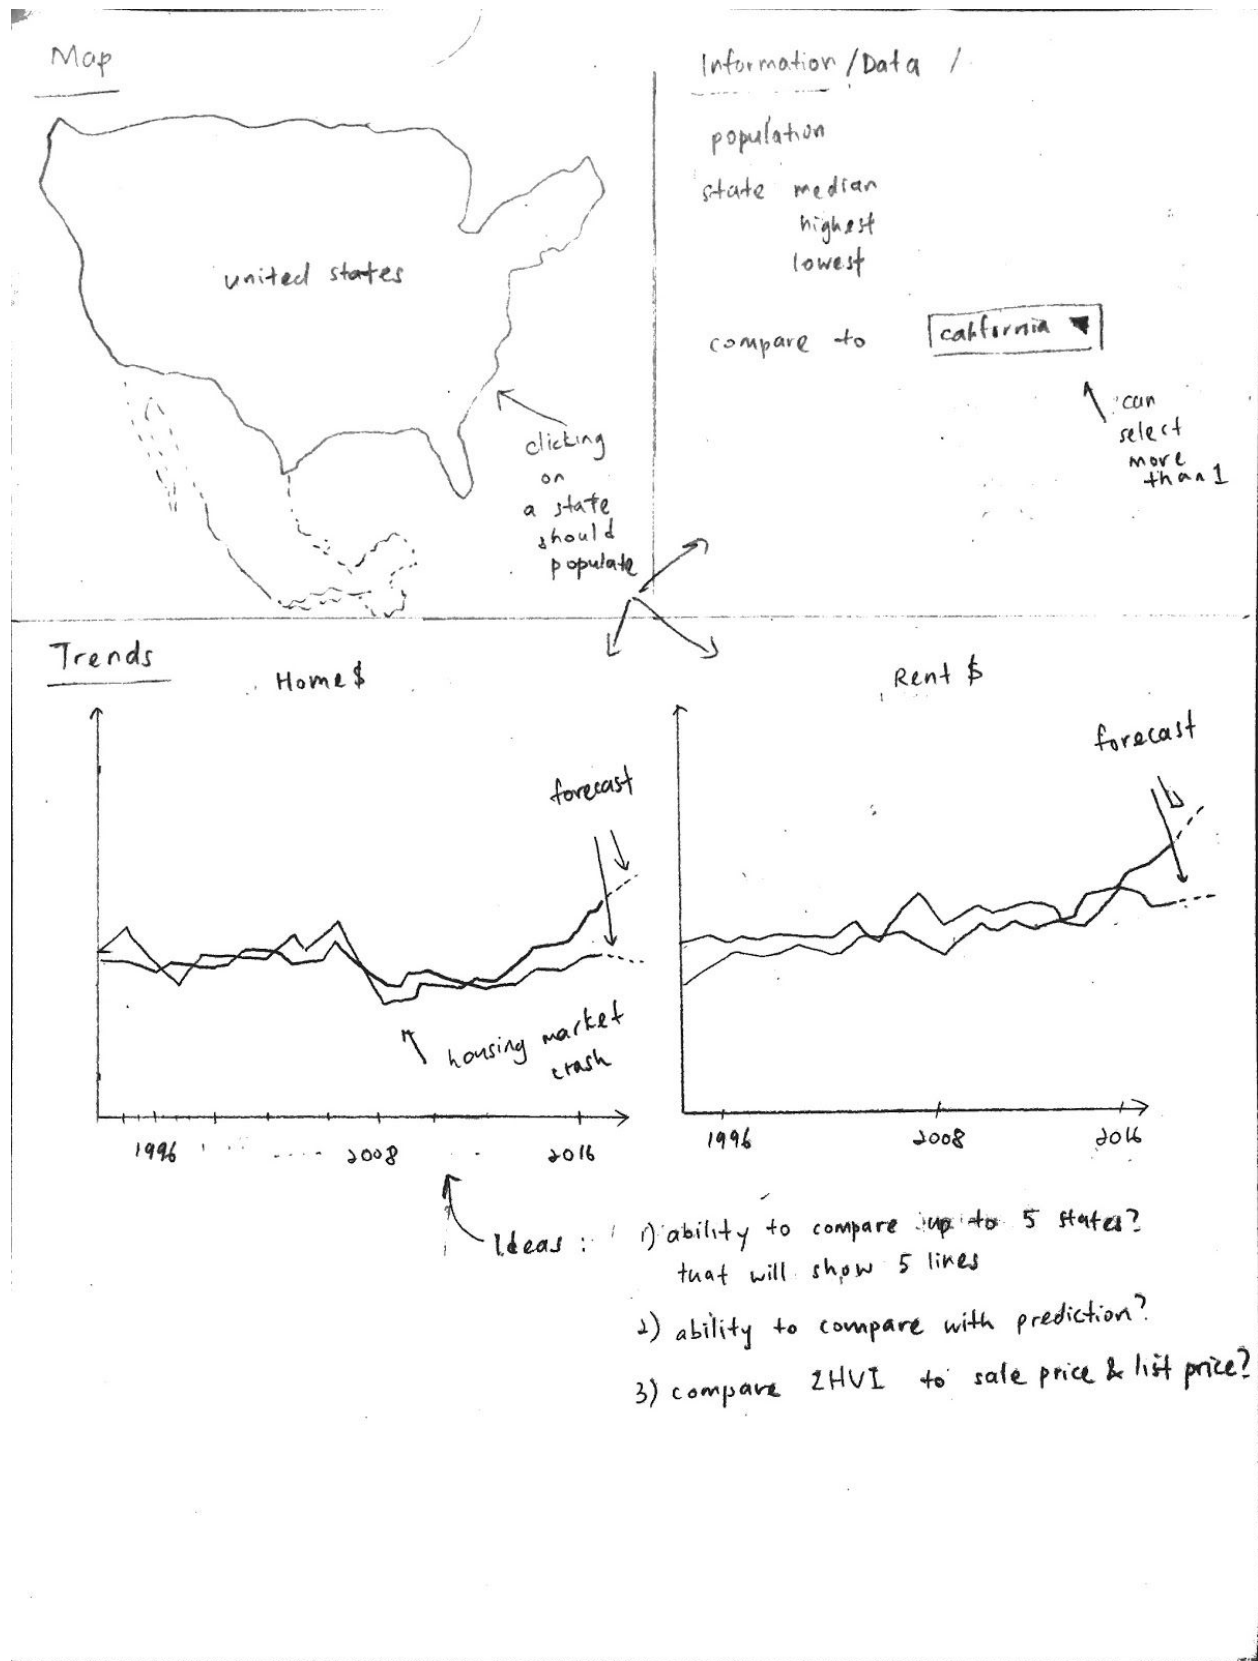 Map
united states
clicking
on
a state
should
populate
Information / Data /
population
state median
highest
lowest
compare to california
can
select
more
than 1
Trends
Home $
forecast
housing market
crash
1996 2008 2016
Rent $
forecast
1996 2008 2016
Ideas : 1) ability to compare up to 5 states?
that will show 5 lines
2) ability to compare with prediction?
3) compare ZHVI to sale price & list price?